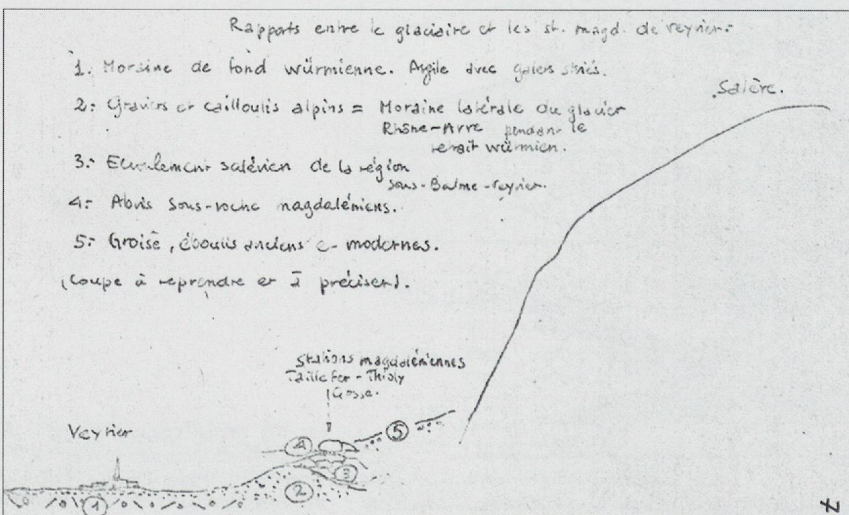 Rapports entre le glaciaire et les st. magd. de veyrier:
1. Moraine de fond würmienne. Argile avec galets striés.
2: Graviers et cailloutis alpins = Moraine latérale du glacier
Rhône-Arve pendant le
retrait würmien.
3: Ecroulement salévien de la région
sous-Balme-veyrier.
4: Abris sous-roche magdaléniens.
5: Groise, éboulis anciens et modernes.
(Coupe à reprendre et à préciser).
Salève.
Stations magdaléniennes
Taillefer-Thioly
Gosse.
Veyrier
4
5
3
2
1
7